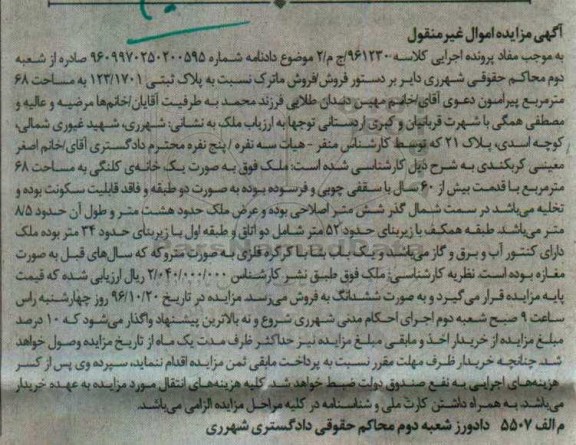 آگهی مزایده اموال غیر منقول
به موجب مفاد پرونده اجرایی کلاسه ۹۶۱۲۳۰/ج م/۲ موضوع دادنامه شماره ۹۶۰۹۹۷۰۲۵۰۲۰۰۵۹۵ صادره از شعبه
دوم محاکم حقوقی شهرری دایر بر دستور فروش/فروش ماترک نسبت به پلاک ثبتی ۱۲۳/۱۷۰۱ به مساحت ۶۸
مترمربع پیرامون دعوی آقای/خانم مهین دندان طلایی فرزند محمد به طرفیت آقایان/خانم‌ها مرضیه و عالیه و
مصطفی همگی با شهرت قربانیان و کبری اردستانی توجها به ارزیاب ملک به نشانی: شهرری، شهید غیوری شمالی،
کوچه اسدی، پلاک ۲۱ که توسط کارشناس منفر - هیات سه نفره / پنج نفره محترم دادگستری آقای/خانم اصغر
معینی کربکندی به شرح ذیل کارشناسی شده است: ملک فوق به صورت یک خانه‌ی کلنگی به مساحت ۶۸
مترمربع با قدمت بیش از ۶۰ سال با سقفی چوبی و فرسوده بوده به صورت دو طبقه و فاقد قابلیت سکونت بوده و
تخلیه می‌باشد در سمت شمال گذر شش متر اصلاحی بوده و عرض ملک حدود هشت متر و طول آن حدود ۸/۵
متر می‌باشد. طبقه همکف با زیربنای حدود ۵۲ متر شامل دو اتاق و طبقه اول با زیربنای حدود ۲۴ متر بوده ملک
دارای کنتور آب و برق و گاز می‌باشد و یک باب بنا با کرکره فلزی به صورت متروکه که سال‌های قبل به صورت
مغازه بوده است. نظریه کارشناسی: ملک فوق طبق نظر کارشناس ۲/۰۴۰/۰۰۰/۰۰۰ ریال ارزیابی شده که قیمت
پایه مزایده قرار می‌گیرد و به صورت ششدانگ به فروش می‌رسد مزایده در تاریخ ۹۶/۱۰/۲۰ روز چهارشنبه راس
ساعت ۹ صبح شعبه دوم اجرای احکام مدنی شهرری شروع و نه بالاترین پیشنهاد واگذار می‌شود که ۱۰ درصد
مبلغ مزایده از خریدار اخذ و مابقی مبلغ مزایده نیز حداکثر ظرف مدت یک ماه از تاریخ مزایده وصول خواهد
شد. چنانچه خریدار ظرف مهلت مقرر نسبت به پرداخت مابقی ثمن مزایده اقدام ننماید، سپرده وی پس از کسر
هزینه‌های اجرایی به نفع صندوق دولت ضبط خواهد شد. کلیه هزینه‌های انتقال مورد مزایده به عهده خریدار
می‌باشد. به همراه داشتن کارت ملی و شناسنامه در کلیه مراحل مزایده الزامی می‌باشد.
م الف ۵۵۰۷ دادورز شعبه دوم محاکم حقوقی دادگستری شهرری